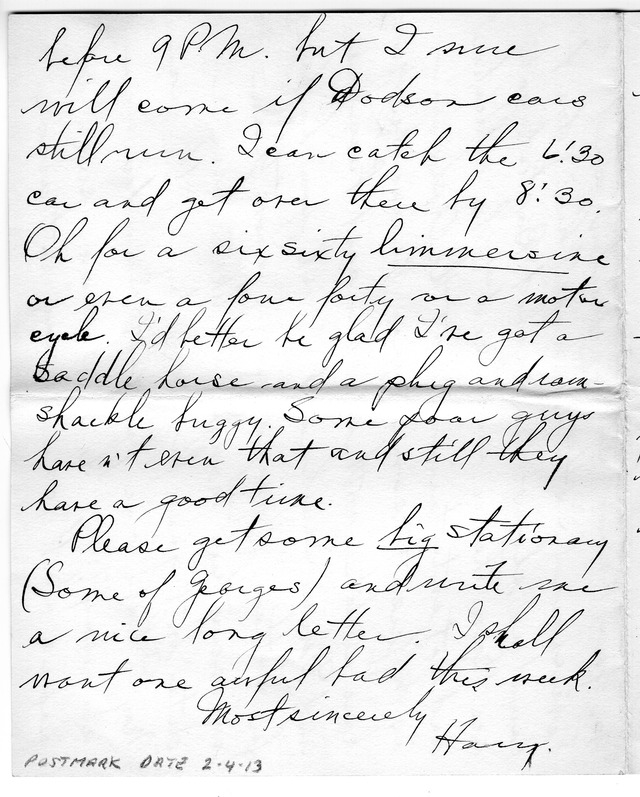 before 9 P.M. but I sure
will come if Dodson cars
still run. I can catch the 6:30
car and get over there by 8:30.
Oh for a six sixty limmersine
or even a four forty or a motor
cycle. I'd better be glad I've got a
saddle horse and a plug and ram-
shackle buggy. Some poor guys
haven't even that and still they
have a good time.
Please get some big stationary
(Some of Georges) and write me
a nice long letter. I shall
want one awful bad this week.
Most sincerely
Harry.
POSTMARK DATE 2-4-13